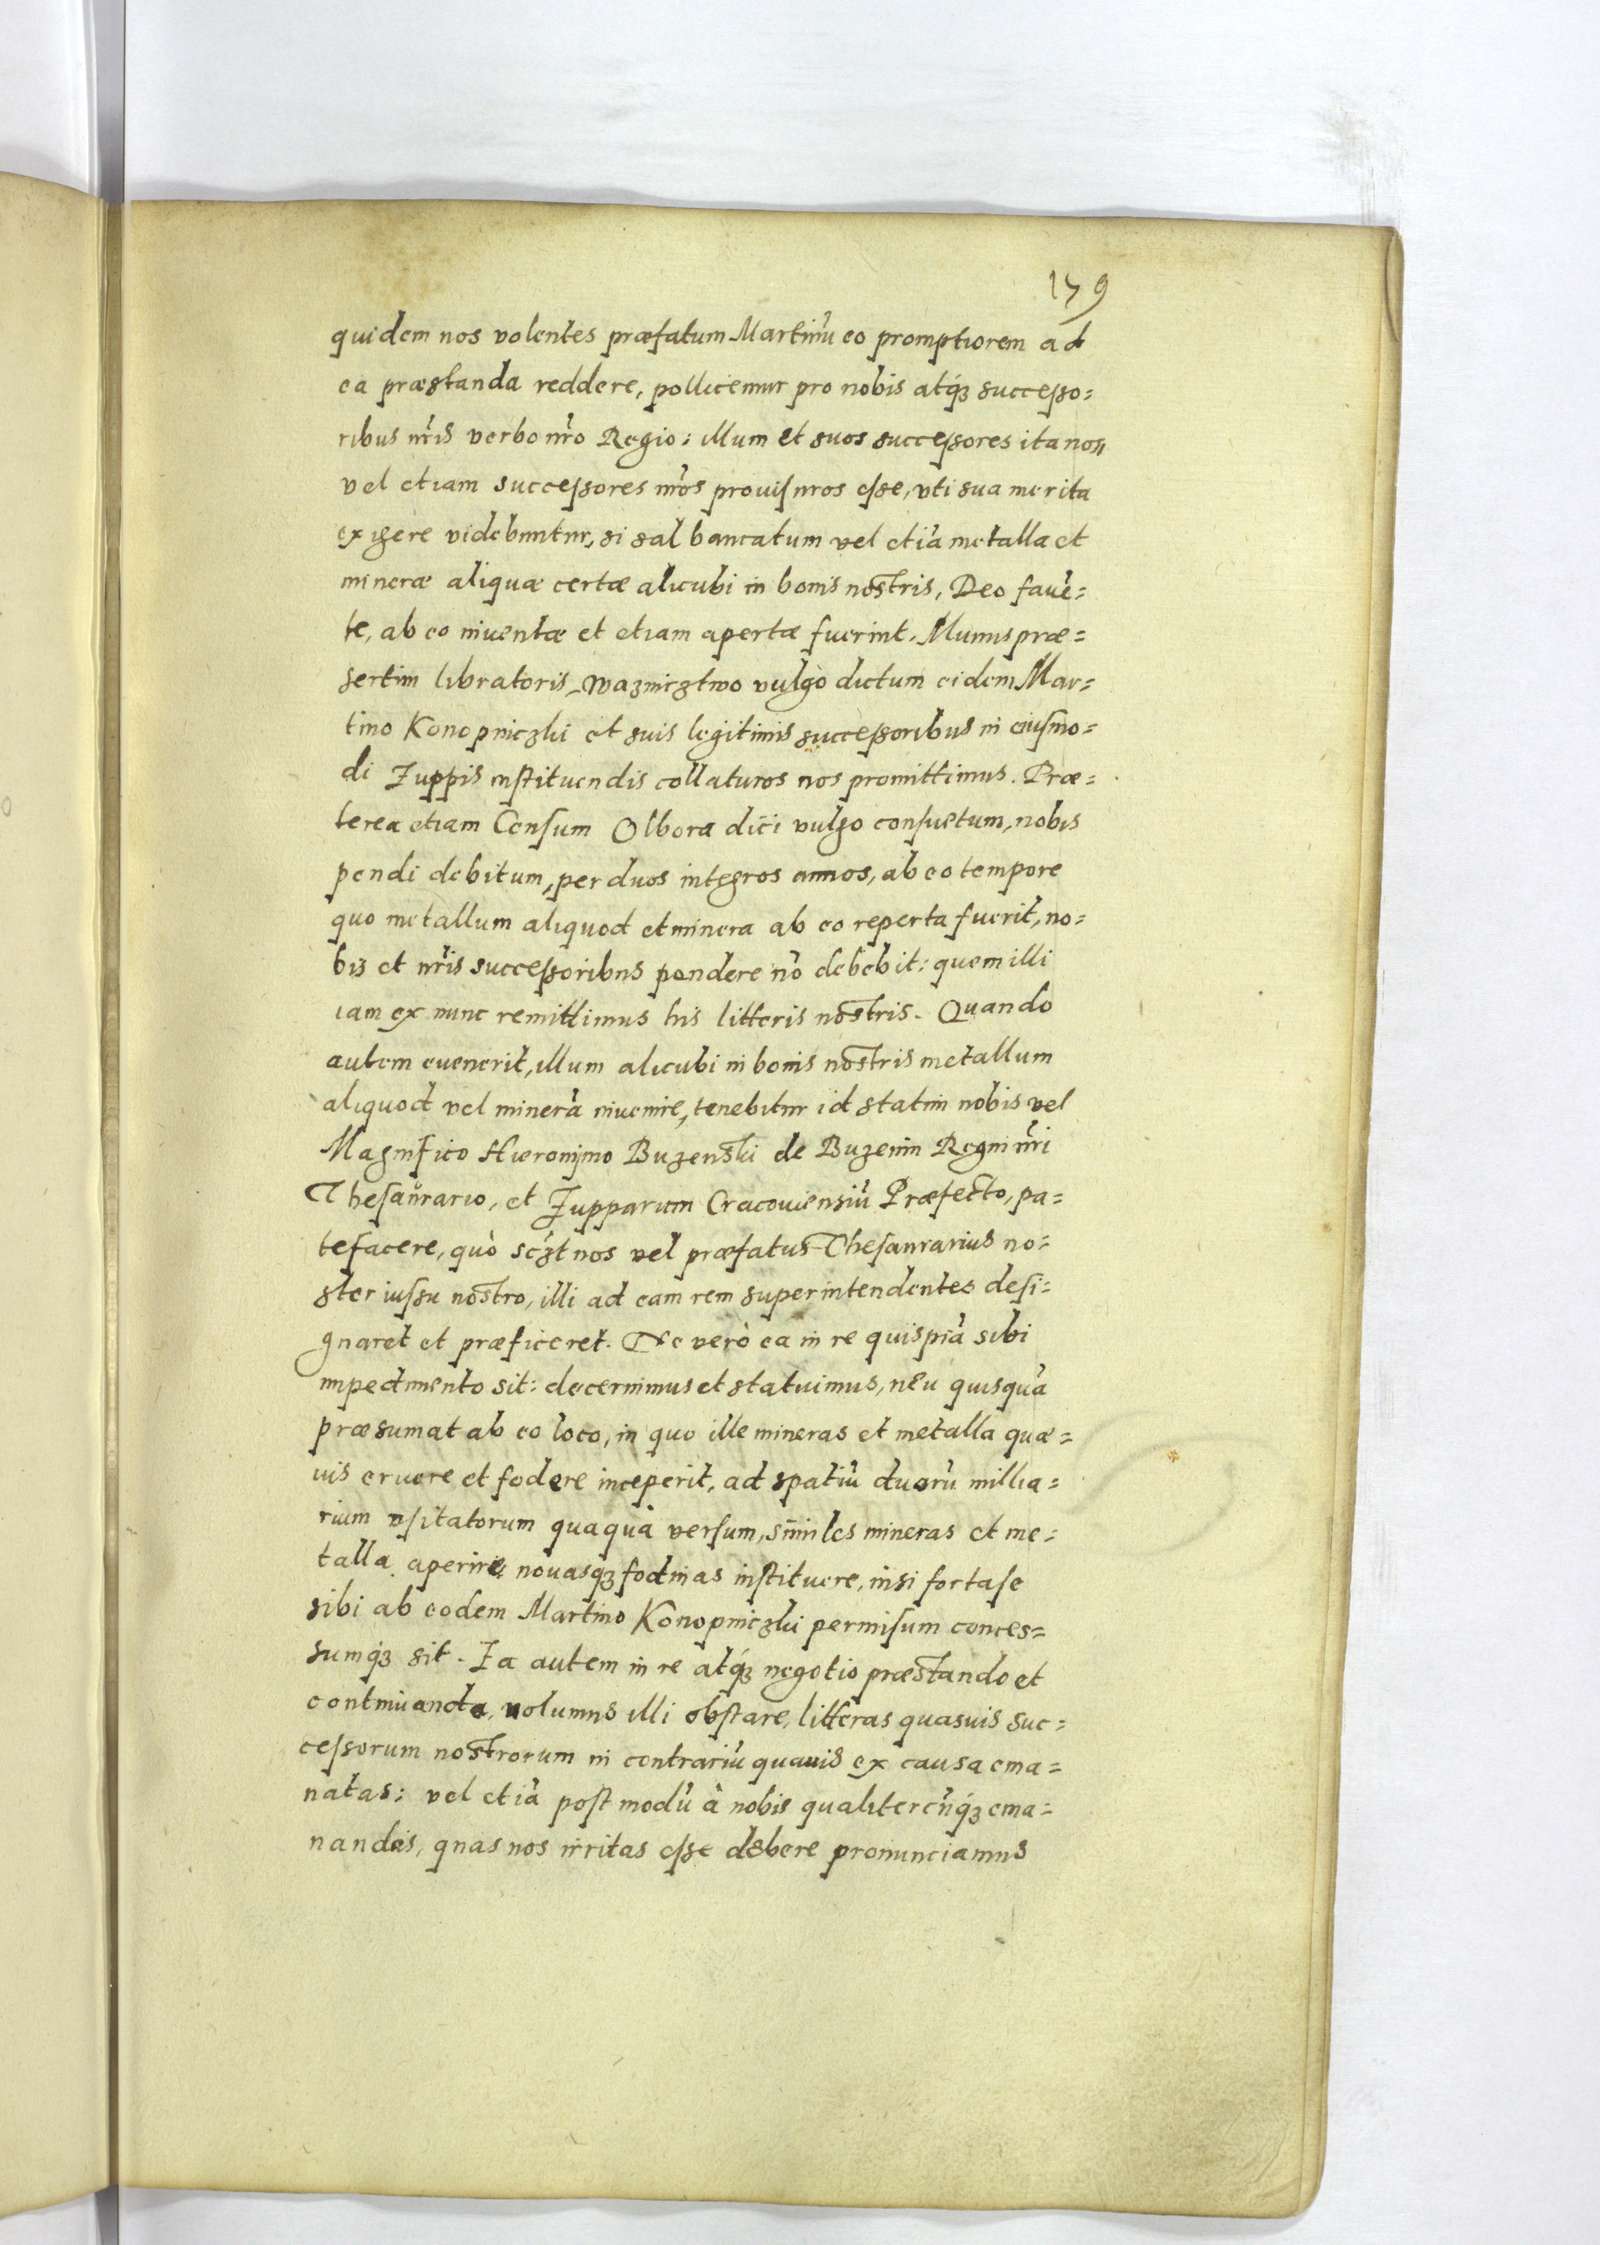 179
quidem nos volentes præfatum Martinũ eo promptiorem ad
ea præstanda reddere, pollicemur pro nobis atq́ꝫ successo=
ribus nr̃is verbo nr̃o Regio: illum et suos successores ita nos
vel etiam successores nr̃os prouisuros esse, vti sua merita
exigere videbuntur, si sal bancatum vel etiã metalla et
mineræ aliquæ certæ alicubi in bonis nostris, Deo fauẽ=
te, ab eo inuentæ et etiam apertæ fuerint. Munus præ=
sertim libratoris, Wazniczstwo vulgò dictum eidem Mar=
tino Konopniczki et suis legitimis successoribus in eiusmo=
di Zuppis instituendis collaturos nos promittimus. Præ=
terea etiam Censum Olbora dici vulgo consuetum, nobis
pendi debitum, per duos integros annos, ab eo tempore
quo metallum aliquod et minera ab eo reperta fuerit, no=
bis et nr̃is successoribus pendere nõ debebit: quem illi
iam ex nunc remittimus his litteris nostris. Quando
autem euenerit, illum alicubi in bonis nostris metallum
aliquod vel minerã inuenire, tenebitur id statim nobis vel
Magnifico Hieronymo Buzenski de Buzenin Regni nr̃i
Thesaurario, et Zupparum Cracouiensiũ Præfecto, pa=
tefacere, quò scꝫt nos vel præfatus Thesaurarius no=
ster iussu nostro, illi ad eam rem superintendentes desi=
gnaret et præficeret. Ne verò ea in re quispiã sibi
impedimento sit: decernimus et statuimus, neu quisquã
præsumat ab eo loco, in quo ille mineras et metalla quæ=
uis eruere et fodere inceperit, ad spatiũ duorũ millia=
rium usitatorum quaquà versum, similes mineras et me=
talla aperire, nouasqꝫ fodinas instituere, nisi fortase
sibi ab eodem Martino Konopniczki permisum conces=
sumq́ꝫ sit. Ea autem in re atq́ꝫ negotio præstando et
continuando, nolumus illi obstare, litteras quasuis suc=
cessorum nostrorum in contrariũ quauis ex causa ema=
natas: vel etiã postmodũ à nobis qualitercũq́ꝫ ema=
nandas, quas nos irritas esse debere pronunciamus